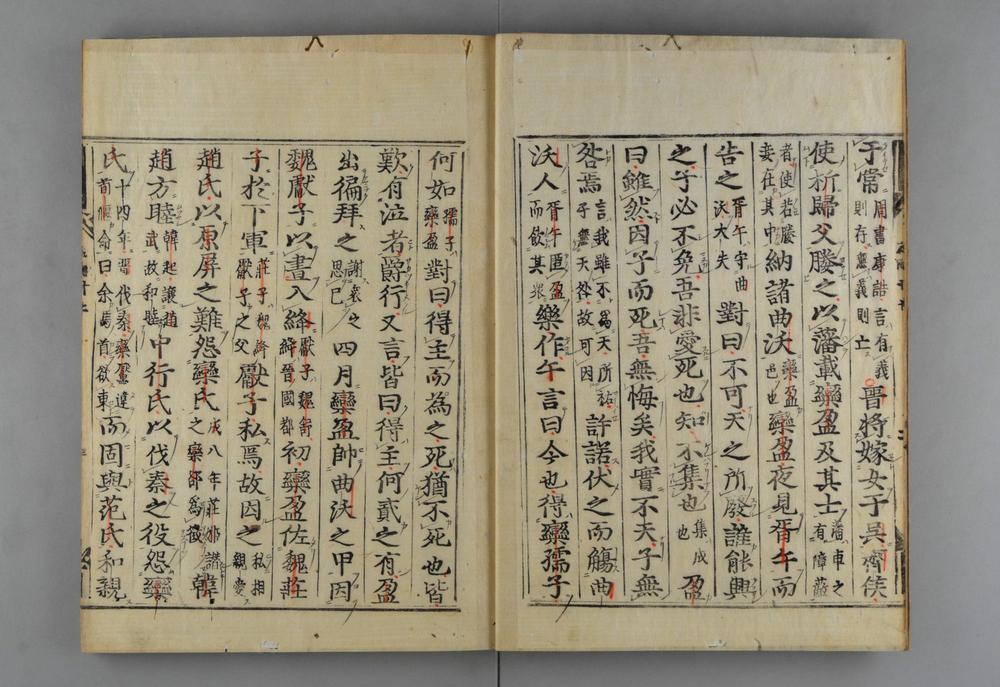 于常周書康誥言有義則存無義則亡晉將嫁女于吳齊侯
使析歸父媵之以藩載欒盈及其士藩車之有障蔽
者使若媵妾在其中納諸曲沃欒盈邑也欒盈夜見胥午而
告之胥午守曲沃大夫對曰不可天之所廢誰能興
之子必不免吾非愛死也知不集也集成也盈
曰雖然因子而死吾無悔矣我實不天子無
咎焉言我雖不爲天所祐子無天咎故可因許諾伏之而觴曲
沃人胥午匿盈而飲其眾樂作午言曰今也得欒孺子
何如孺子欒盈對曰得主而為之死猶不死也皆
歎有泣者爵行又言皆曰得主何貳之有盈
出徧拜之謝衆之思已四月欒盈帥曲沃之甲因
魏獻子以晝入絳獻子魏舒絳晉國都初欒盈佐魏莊
子於下軍莊子魏絳獻子之父獻子私焉故因之私相親愛
趙氏以原屏之難怨欒氏成八年莊姬譖之欒郤爲徵韓
趙方睦韓起讓趙武故和睦中行氏以伐秦之役怨欒
氏十四年晉伐秦欒黶違荀偃命曰余馬首欲東而固與范氏和親